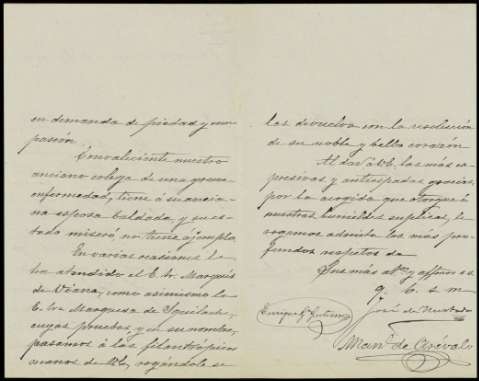 en demanda de piedad y com
pasión.
Convaleciente nuestro
anciano colega de una grave
enfermedad, tiene á su ancia-
na esposa baldada, y su es-
tado mísero, no tiene ejemplo.
En varias ocasiones le
ha atendido el E. Sr. Marqués
de Viana, como asimismo la
E. Sra. Marquesa de Squilache,
cuyas pruebas, y en su nombre,
pasamos á las filantrópicas
manos de VE, rogándole se
las devuelva con la resolución
de su noble y bello corazón
Al dar á VE. las más ex-
presivas y anticipadas gracias,
por la acogida que otorgue á
nuestras humildes suplicas, le
rogamos admita los más pro-
fundos respetos de
Sus más attos y affmos ss
q. b. s. m
José de
Enrique Gutierrez
Manl de Arévalo